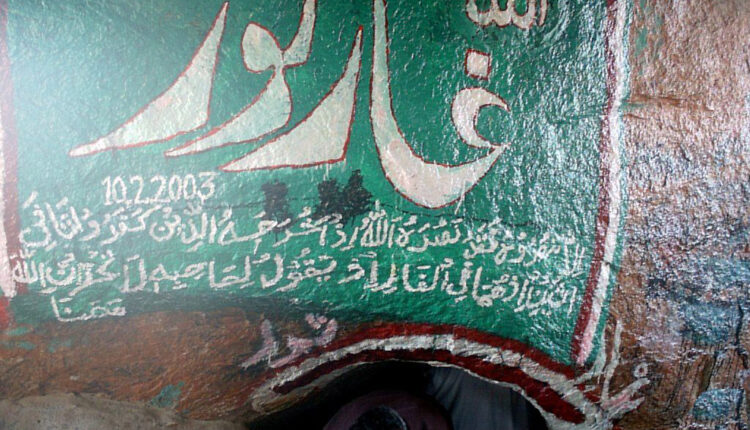 الله
غار ثور
10.2.2003
الا تنصروه فقد نصره الله اذ اخرجه الذين كفرو ثاني
اثنين اذ هما في الغار اذ يقول لصاحبه لا تحزن ان الله
معنا
غار ثور